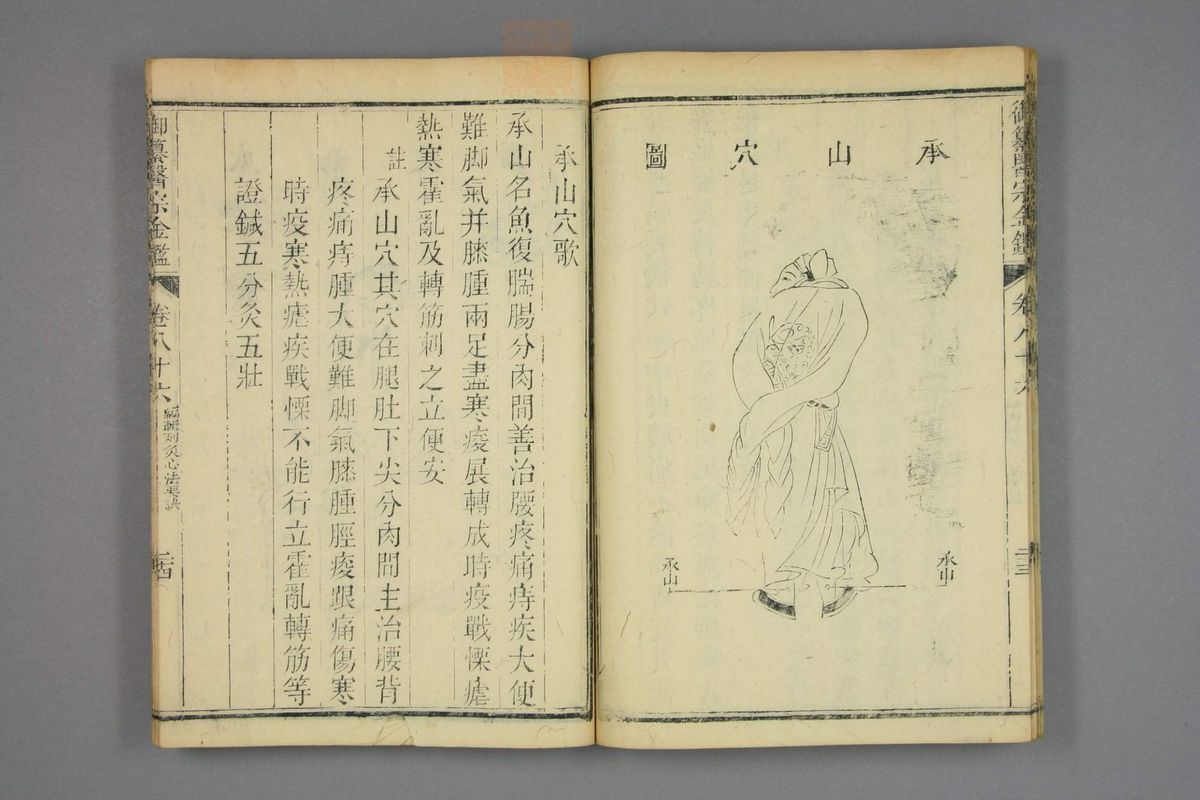 御纂醫宗金鑑 卷八十六 二十三
承山穴圖
承山
承山
承山穴歌
承山名魚復腨腸分肉間善治腰疼痛痔疾大便
難脚氣并膝腫兩足盡寒痠展轉成時疫戰慄瘧
熱寒霍亂及轉筋刺之立便安
註 承山穴其穴在腿肚下尖分肉間主治腰背
疼痛痔腫大便難脚氣膝腫脛痠跟痛傷寒
時疫寒熱瘧疾戰慄不能行立霍亂轉筋等
證鍼五分灸五壯
御纂醫宗金鑑 卷八十六 編輯刺灸心法要訣 二十四